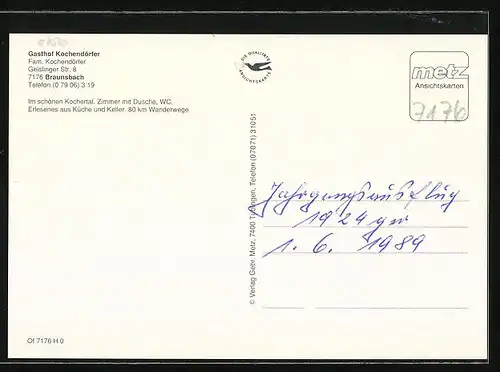 Gasthof Kochendörfer
Fam. Kochendörfer
Geislinger Str. 8
7176 Braunsbach
Telefon (0 79 06) 3 19
Im schönen Kochertal. Zimmer mit Dusche, WC.
Erlesenes aus Küche und Keller. 80 km Wanderwege
DIE QUALITÄTS
ANSICHTSKARTE
metz
Ansichtskarten
7176
© Verlag Gebr. Metz, 7400 Tübingen, Telefon (07071) 31051
Jahrgangsausflug
1924 ger
1. 6. 1989
Of 7176 H 0